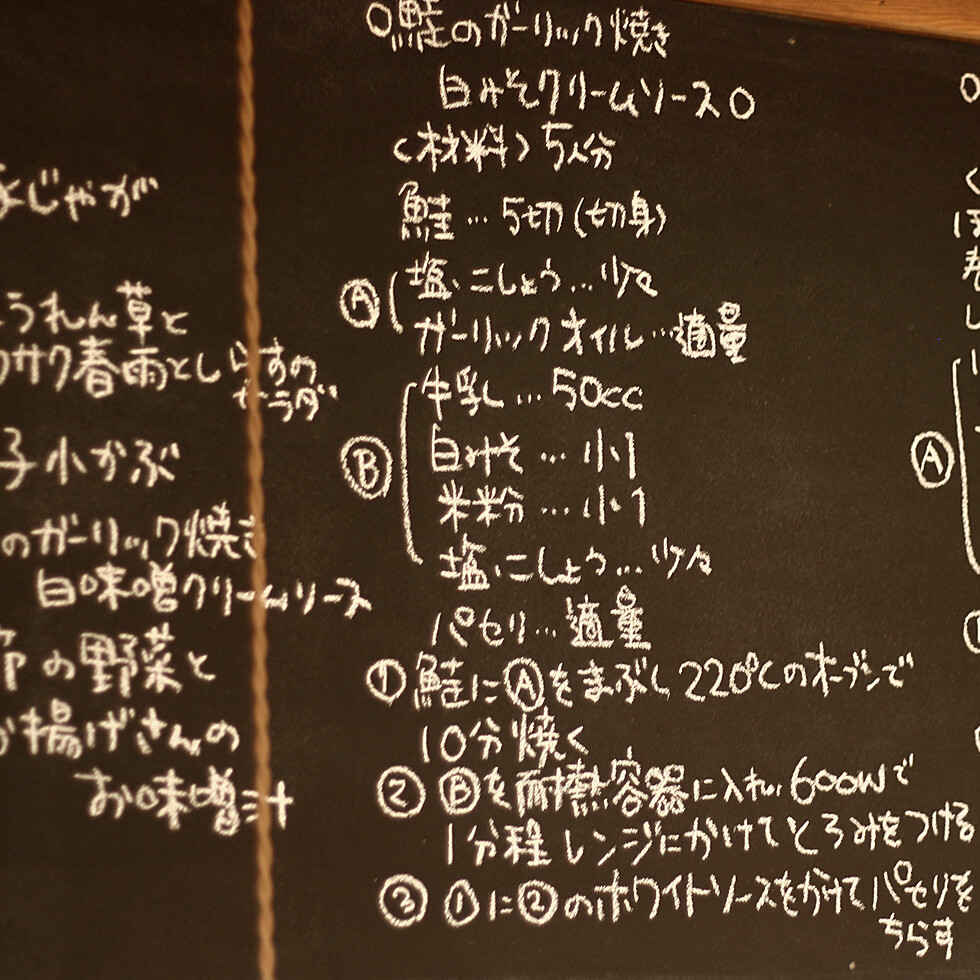 じゃが
うれん草と
サク春雨としらすの
サラダ
子小かぶ
のガーリック焼き
白味噌クリームソース
の野菜と
揚げさんの
お味噌汁
○鮭のガーリック焼き
白みそクリームソース○
<材料> 5人分
鮭…5切(切身)
Ⓐ 塩、こしょう…少々
ガーリックオイル…適量
Ⓑ 牛乳…50cc
白みそ…小1
米粉…小1
塩、こしょう…少々
パセリ…適量
① 鮭にⒶをまぶし220℃のオーブンで
10分焼く
② Ⓑを耐熱容器に入れ、600Wで
1分程レンジにかけてとろみをつける
③ ①に②のホワイトソースをかけてパセリを
ちらす
Ⓐ